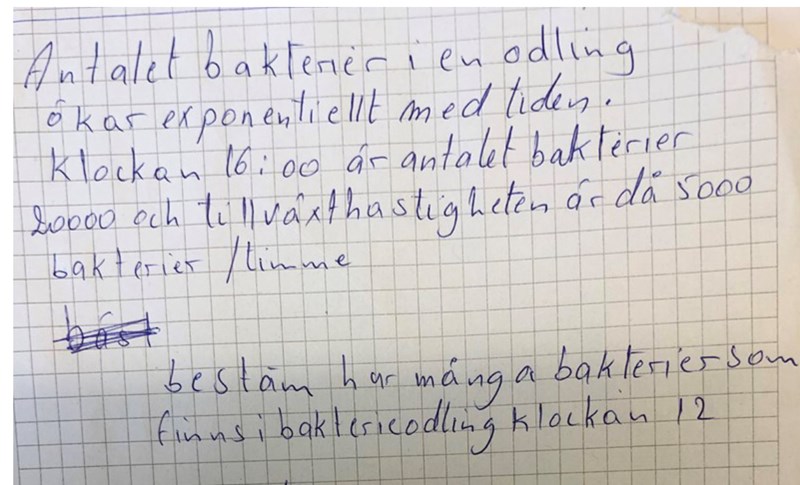 Antalet bakterier i en odling
ökar exponentiellt med tiden.
klockan 16:00 är antalet bakterier
20000 och tillväxthastigheten är då 5000
bakterier /timme
bäst
bestäm hur många bakterier som
finns i bakterieodling klockan 12